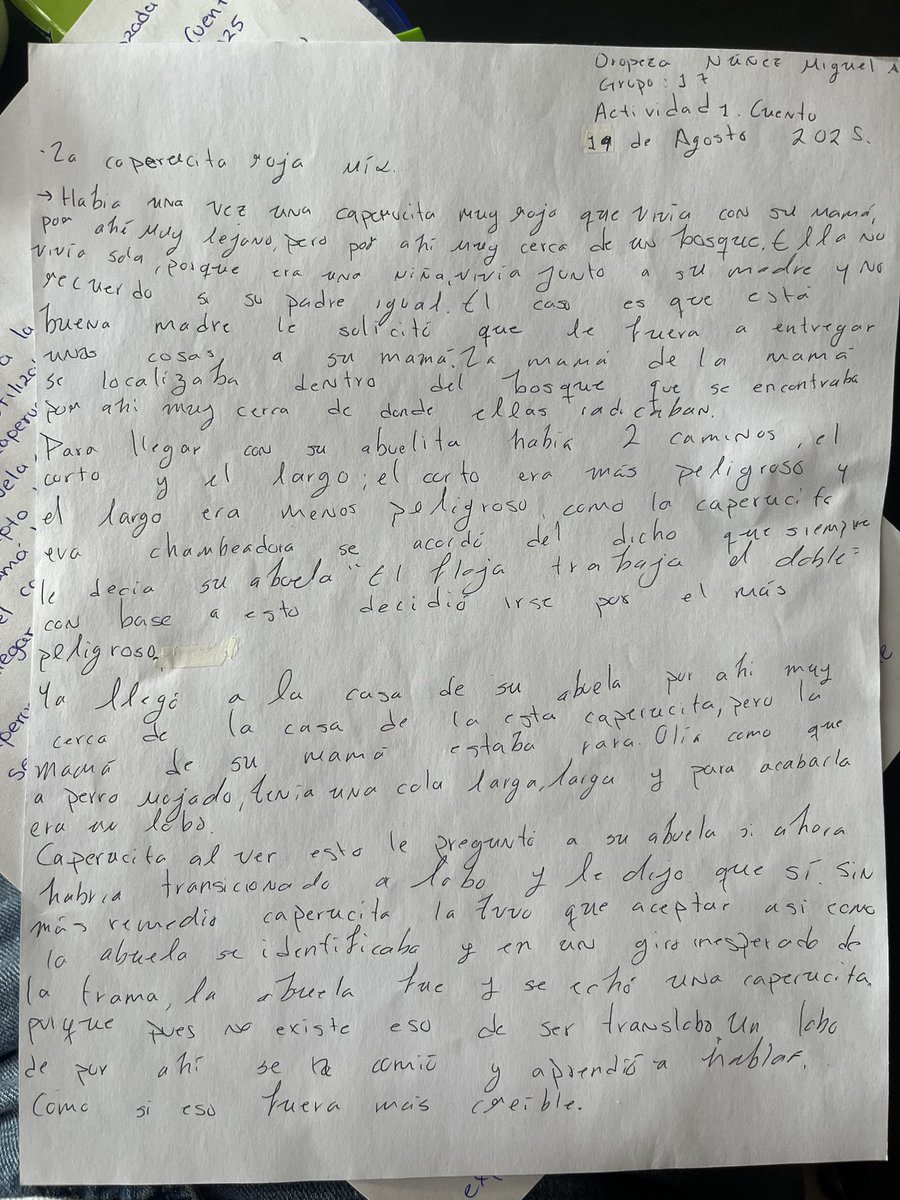 Oropeza Núñez Miguel A
Grupo: 17
Actividad 1. Cuento
19 de Agosto 2025.
La caperucita roja
→ Habia una vez una caperucita muy roja que vivia con su mamá,
por ahí muy lejano, pero por ahí muy cerca de un bosque. Ella no
vivía sola, porque era una niña, vivía junto a su madre y no
recuerdo si su padre igual. El caso es que está
buena madre le solicitó que le fuera a entregar
unas cosas a su mamá. La mamá de la mamá
se localizaba dentro del bosque que se encontraba
por ahi muy cerca de donde ellas radicaban.
Para llegar con su abuelita habia 2 caminos, el
corto y el largo; el corto era más peligroso y
el largo era menos peligroso, como la caperucita
era chambeadora se acordó del dicho que siempre
le decia su abuela "El floja trabaja el doble"
con base a esto decidió irse por el más
peligroso.
Ya llegó a la casa de su abuela por ahi muy
cerca de la casa de la esta caperucita, pero la
mamá de su mamá estaba rara. Olía como que
a perro mojado, tenia una cola larga, larga y para acabarla
era un lobo.
Caperucita al ver esto le preguntó a su abuela si ahora
habria transicionado a lobo, y le dijo que sí. Sin
más remedio caperucita la tuvo que aceptar asi como
la abuela se identificaba y en un giro inesperado de
la trama, la abuela fue y se echó una caperucita,
porque pues no existe eso de ser translobo. Un lobo
de por ahi se la comió y aprendió a hablar.
Como si eso fuera más creible.